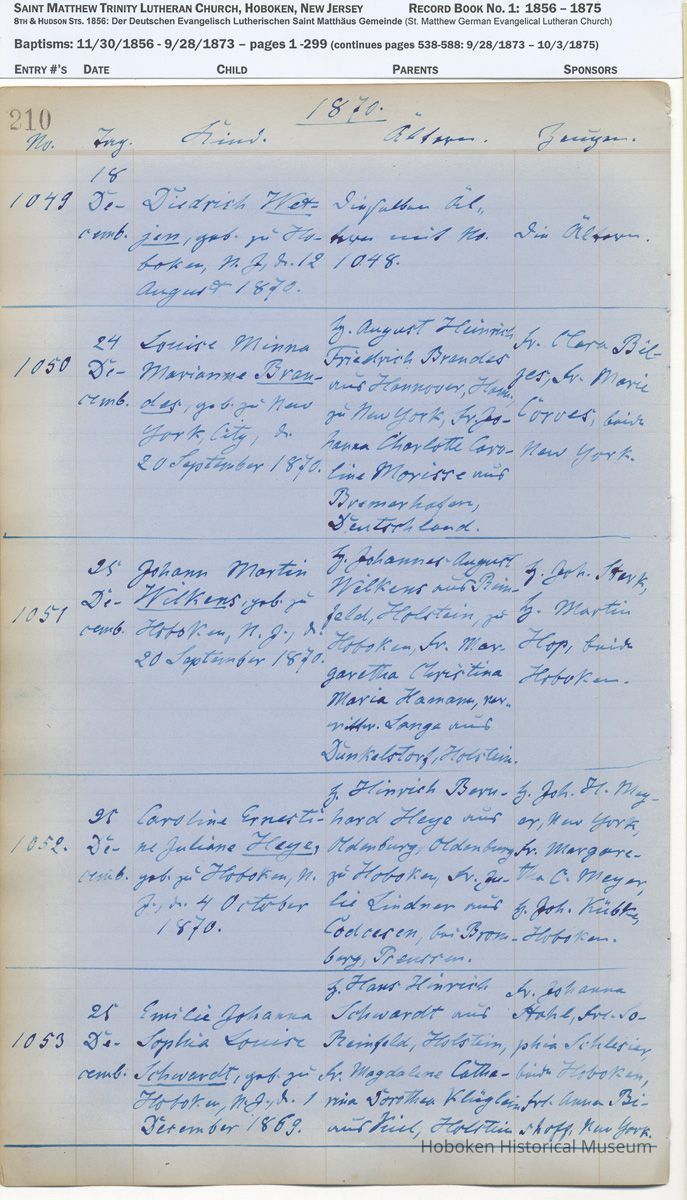 SAINT MATTHEW TRINITY LUTHERAN CHURCH, HOBOKEN, NEW JERSEY RECORD BOOK NO. 1: 1856 – 1875
8TH & HUDSON STS. 1856: Der Deutschen Evangelisch Lutherischen Saint Matthäus Gemeinde (St. Matthew German Evangelical Lutheran Church)
Baptisms: 11/30/1856 - 9/28/1873 – pages 1 -299 (continues pages 538-588: 9/28/1873 – 10/3/1875)
ENTRY #'S DATE CHILD PARENTS SPONSORS
210
1870.
No. Tag. Kind. Ältern. Zeugen.
1049
18
De-
cemb.
Diedrich Wet-
jen, geb. zu Ho-
boken, N. J., d. 12
August 1870.
Dieselben Äl-
tern mit No.
1048.
Die Ältern.
1050
24
De-
cemb.
Louise Minna
Marianne Bran-
des, geb. zu New
York, City, d.
20 September 1870.
H. August Heinrich
Friedrich Brandes
aus Hannover, Hann.
zu New York, Fr. Jo-
hanna Charlotte Caro-
line Morisse aus
Bremerhafen,
Deutschland.
Fr. Clara Bil-
ges, Fr. Marie
Corves, beide
New York.
1051
25
De-
cemb.
Johann Martin
Wilkens, geb. zu
Hoboken, N. J., d.
20 September 1870.
H. Johannes August
Wilkens aus Rein-
feld, Holstein, zu
Hoboken, Fr. Mar-
garetha Christina
Maria Hamann, ver-
wittw. Lange aus
Dunkelstorf, Holstein.
H. Joh. Sterk,
H. Martin
Hop, beide
Hoboken.
1052.
25
De-
cemb.
Caroline Ernesti-
ne Juliane Heye,
geb. zu Hoboken, N.
J., d. 4 October
1870.
H. Hinrich Bern-
hard Heye aus
Oldenburg, Oldenburg
zu Hoboken, Fr. Ju-
lie Lindner aus
bei Brom-
berg, Preussen.
H. Joh. H. Mey-
er, New York,
Fr. Margare-
tha C. Meyer,
H. Joh. Kübke,
Hoboken.
1053
25
De-
cemb.
Emilie Johanna
Sophia Louise
Schwardt, geb. zu
Hoboken, N. J., d. 1
December 1869.
H. Hans Hinrich
Schwardt aus
Reinfeld, Holstein,
Fr. Magdalene Catha-
rina Dorothea
aus Kiel, Holstein
Fr. Johanna
Hohl, Frl. So-
phia Schlesier,
beide Hoboken,
Frl. Anna Bi-
shoff, New York.
Hoboken Historical Museum